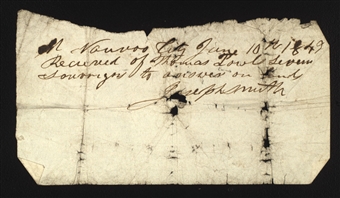 Nauvoo City June 10th 1843
Received of Thomas seven
Sovreigns to answer on land
Joseph Smith